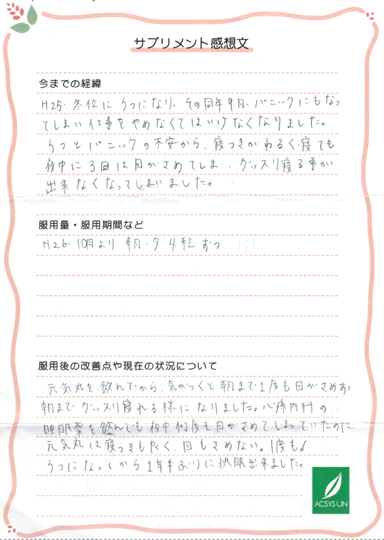 サプリメント感想文
今までの経緯
H25. 冬位にうつになり、その同年9月、パニックにもなっ
てしまい仕事をやめなくてはいけなくなりました。
うつとパニックの不安から、寝つきがわるく、寝ても
夜中に3回は目がさめてしま グッスリ寝る事が
出来なくなってしまいました。
服用量・服用期間など
H26.10月より 朝・夕 4粒ずつ
服用後の改善点や現在の状況について
元気丸を飲んでから、気がつくと朝まで1度も目がさめず
朝までグッスリ寝れる様になりました。心療内科の
眠剤薬を飲んでも夜中何度も目がさめてしまっていたのに
元気丸は寝つきも早く、目もさめない。1度も!
うつになってから1年半ぶりに快眠出来ました。
ACSYSUN